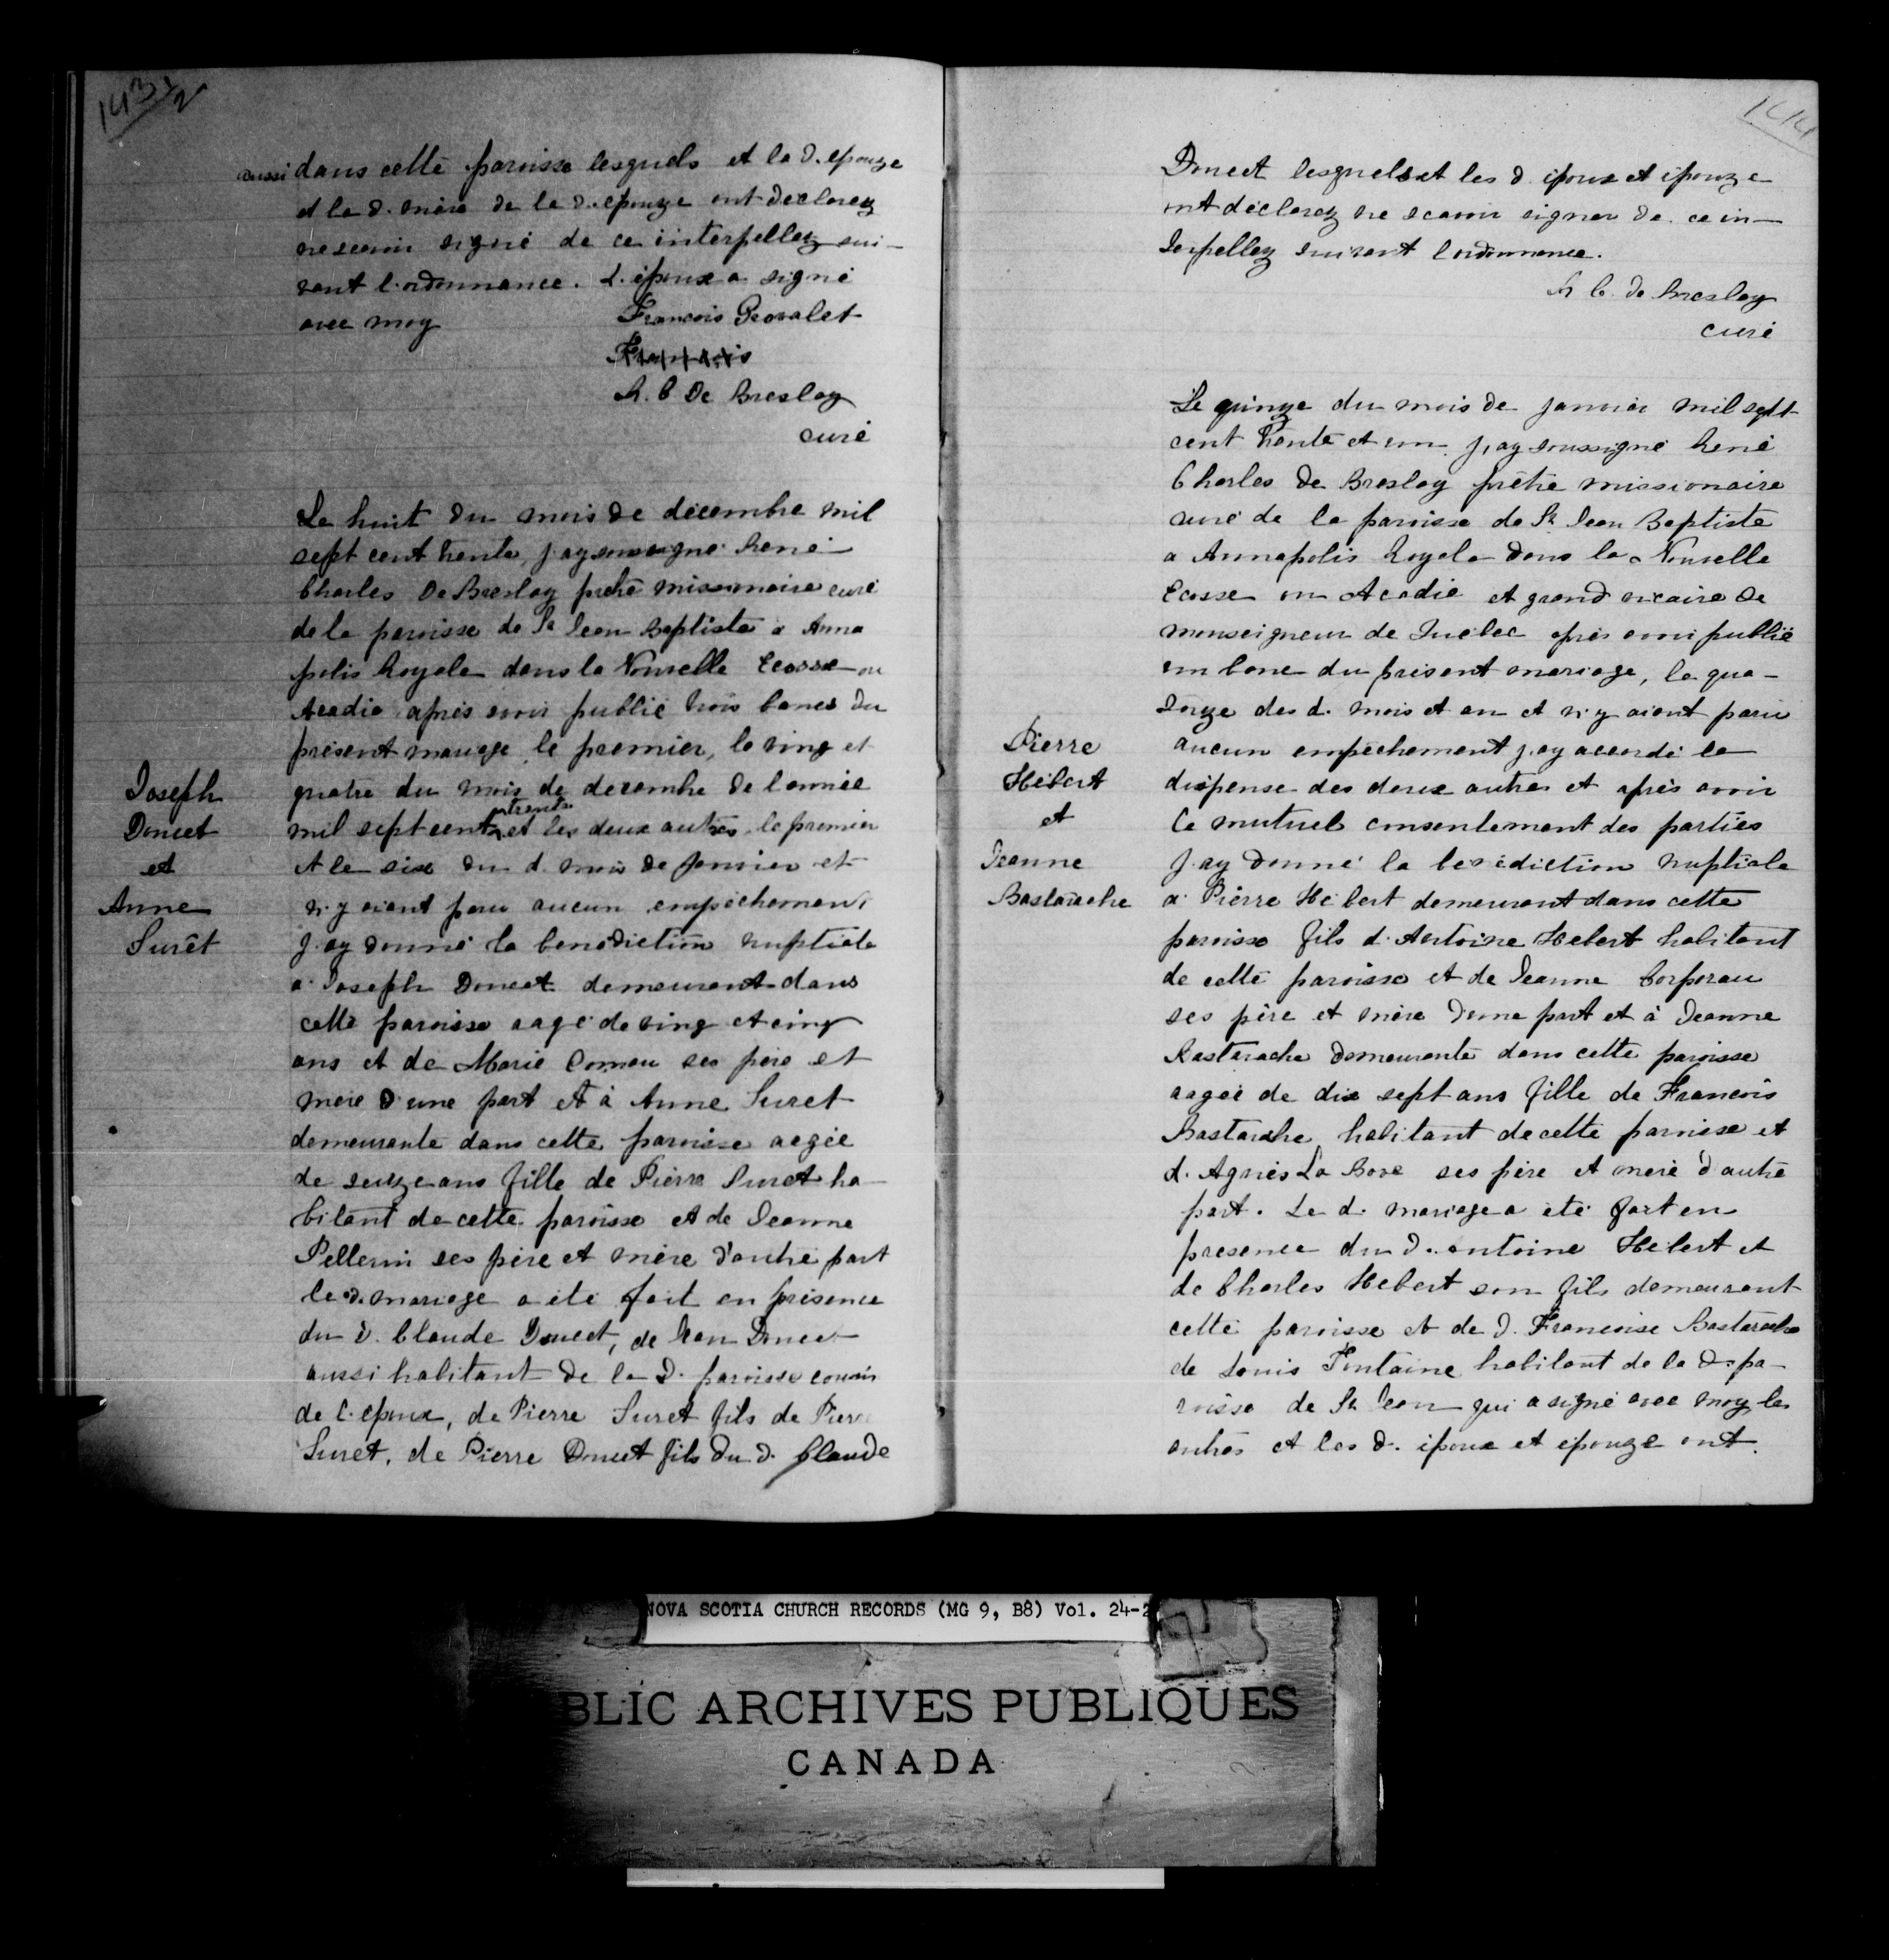 143½
aussi dans cette paroisse lesquels et la d. epouze
et la d. mère de la d. epouze ont declarez
ne scavoir signé de ce interpellez sui-
vant l'ordonnance. L'époux a signé
avec moy François
François
R. C De Breslay
curé
Le huit du mois de décembre mil
sept cent trente, j'ay soussigné René
Charles De Breslay prêtre missionnaire curé
de la paroisse de St Jean Baptiste a Anna
polis Royale dans la Nouvelle Ecosse ou
Acadie après avoir publié trois bancs du
présent mariage, le premier, le ving et
Joseph
Doucet
et
Anne
Surêt
quatre du mois de decembre de l'année
mil sept cent trente et les deux autres, le premier
et le six du d. mois de Janvier et
n'y aiant paru aucun empêchement
j'ay donné la benediction nuptiale
a Joseph Doucet demeurant dans
cette paroisse aagé de ving et cinq
ans et de Marie Comeau ses père et
mère d'une part et à Anne Suret
demeurante dans cette paroisse aegée
de seuze ans fille de Pierre Suret ha-
bitant de cette paroisse et de Jeanne
Pellerin ses père et mère d'autre part
le d. mariage a été fait en présence
du d. Claude Doucet, de Jean Doucet
aussi habitant de la d. paroisse cousin
de l'epoux, de Pierre Suret fils de Pierre
Suret, de Pierre Doucet fils du d. Claude
144
Doucet lesquels et les d. époux et épouze
ont déclarez ne scavoir signer de ce in-
terpellez suivant l'ordonnance.
R C. de Breslay
curé
Le quinze du mois de janvier mil sept
cent trente et un j'ay soussigné René
Charles de Breslay prêtre missionaire
curé de la paroisse de St Jean Baptiste
a Annapolis Royale dans la Nouvelle
Ecosse ou Acadie et grand vicaire de
monseigneur de Quebec après avoir publié
un banc du présent mariage, le qua-
torze des d. mois et an et n'y aiant paru
Pierre
Hébert
et
Jeanne
Bastarache
aucun empêchement j'ay accordé la
dispense des deux autres et après avoir
le mutuel consentement des parties
j'ay donné la benédiction nuptiale
a Pierre Hébert demeurant dans cette
paroisse fils d'Antoine Hebert habitant
de cette paroisse et de Jeanne Corporau
ses père et mère d'une part et à Jeanne
Bastarache demeurante dans cette paroisse
aagée de dix sept ans fille de François
Bastarache habitant de cette paroisse et
d'Agnès La Bove ses père et mère d'autre
part. Le d. mariage a été fait en
presence du d. antoine Hebert et
de Charles Hebert son fils demeurant
cette paroisse et de d. Françoise Bastarache
de Louis Fontaine habitant de la d. pa-
roisse de St Jean qui a signé avec moy, les
autres et les d. époux et épouze ont
NOVA SCOTIA CHURCH RECORDS (MG 9, B8) Vol. 24-2
BLIC ARCHIVES PUBLIQUES
CANADA